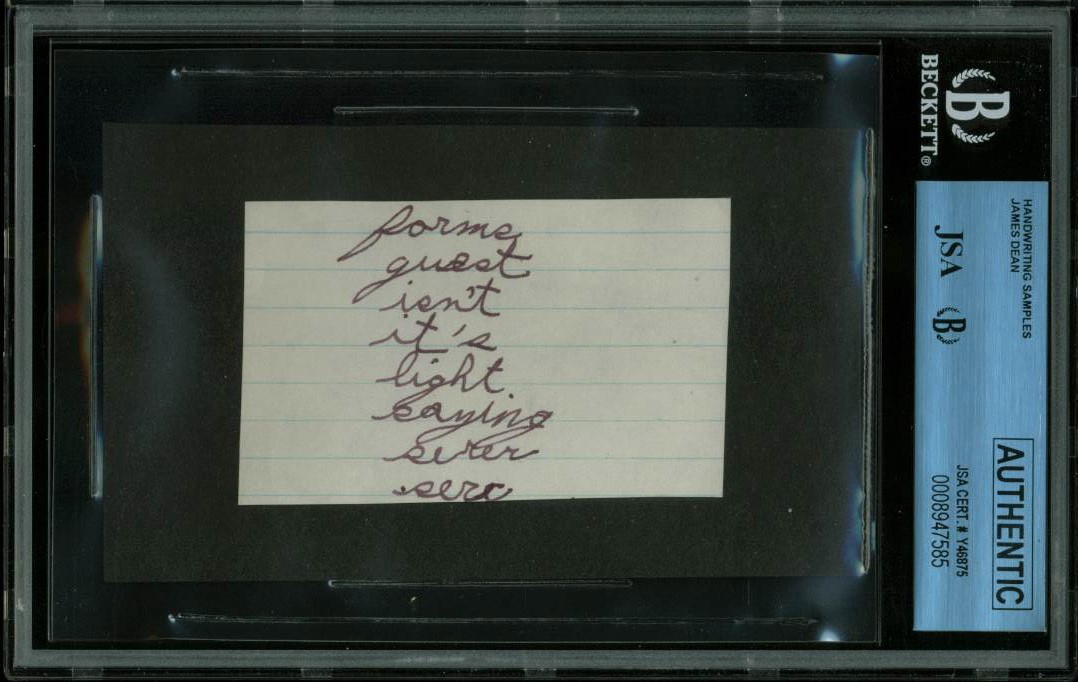 forms
guest
isn't
it's
light
saying
sever
BECKETT®
B
HANDWRITING SAMPLES
JAMES DEAN
JSA B
AUTHENTIC
JSA CERT. # Y46875
0008947585